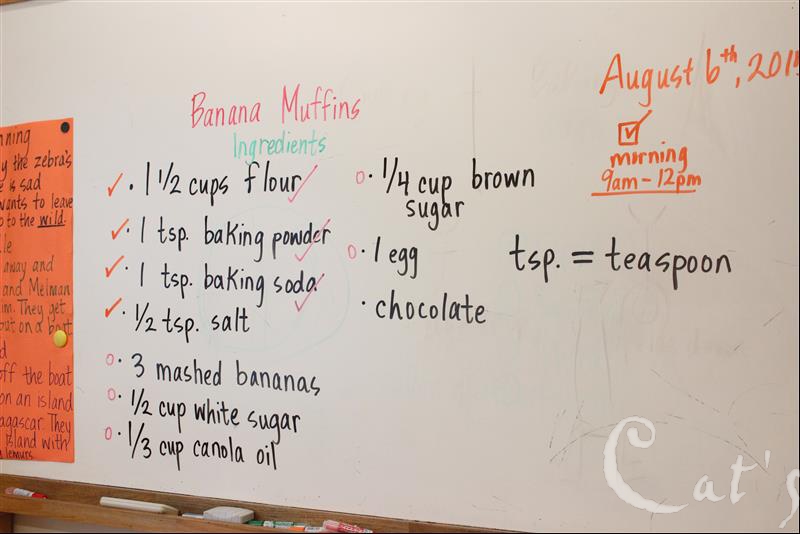 Banana Muffins
Ingredients
• 1 1/2 cups flour
• 1 tsp. baking powder
• 1 tsp. baking soda
• 1/2 tsp. salt
• 3 mashed bananas
• 1/2 cup white sugar
• 1/3 cup canola oil
• 1/4 cup brown
sugar
• 1 egg
• chocolate
tsp. = teaspoon
August 6th, 201
morning
9am - 12pm
the zebra's
is sad
to leave
to the wild.
away and
and Melman
They get
on a boat
off the boat
on an island
They
island with
lemurs.
Cat's